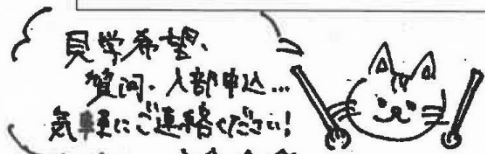 見学希望、
質問・入部申込…
気軽にご連絡ください!